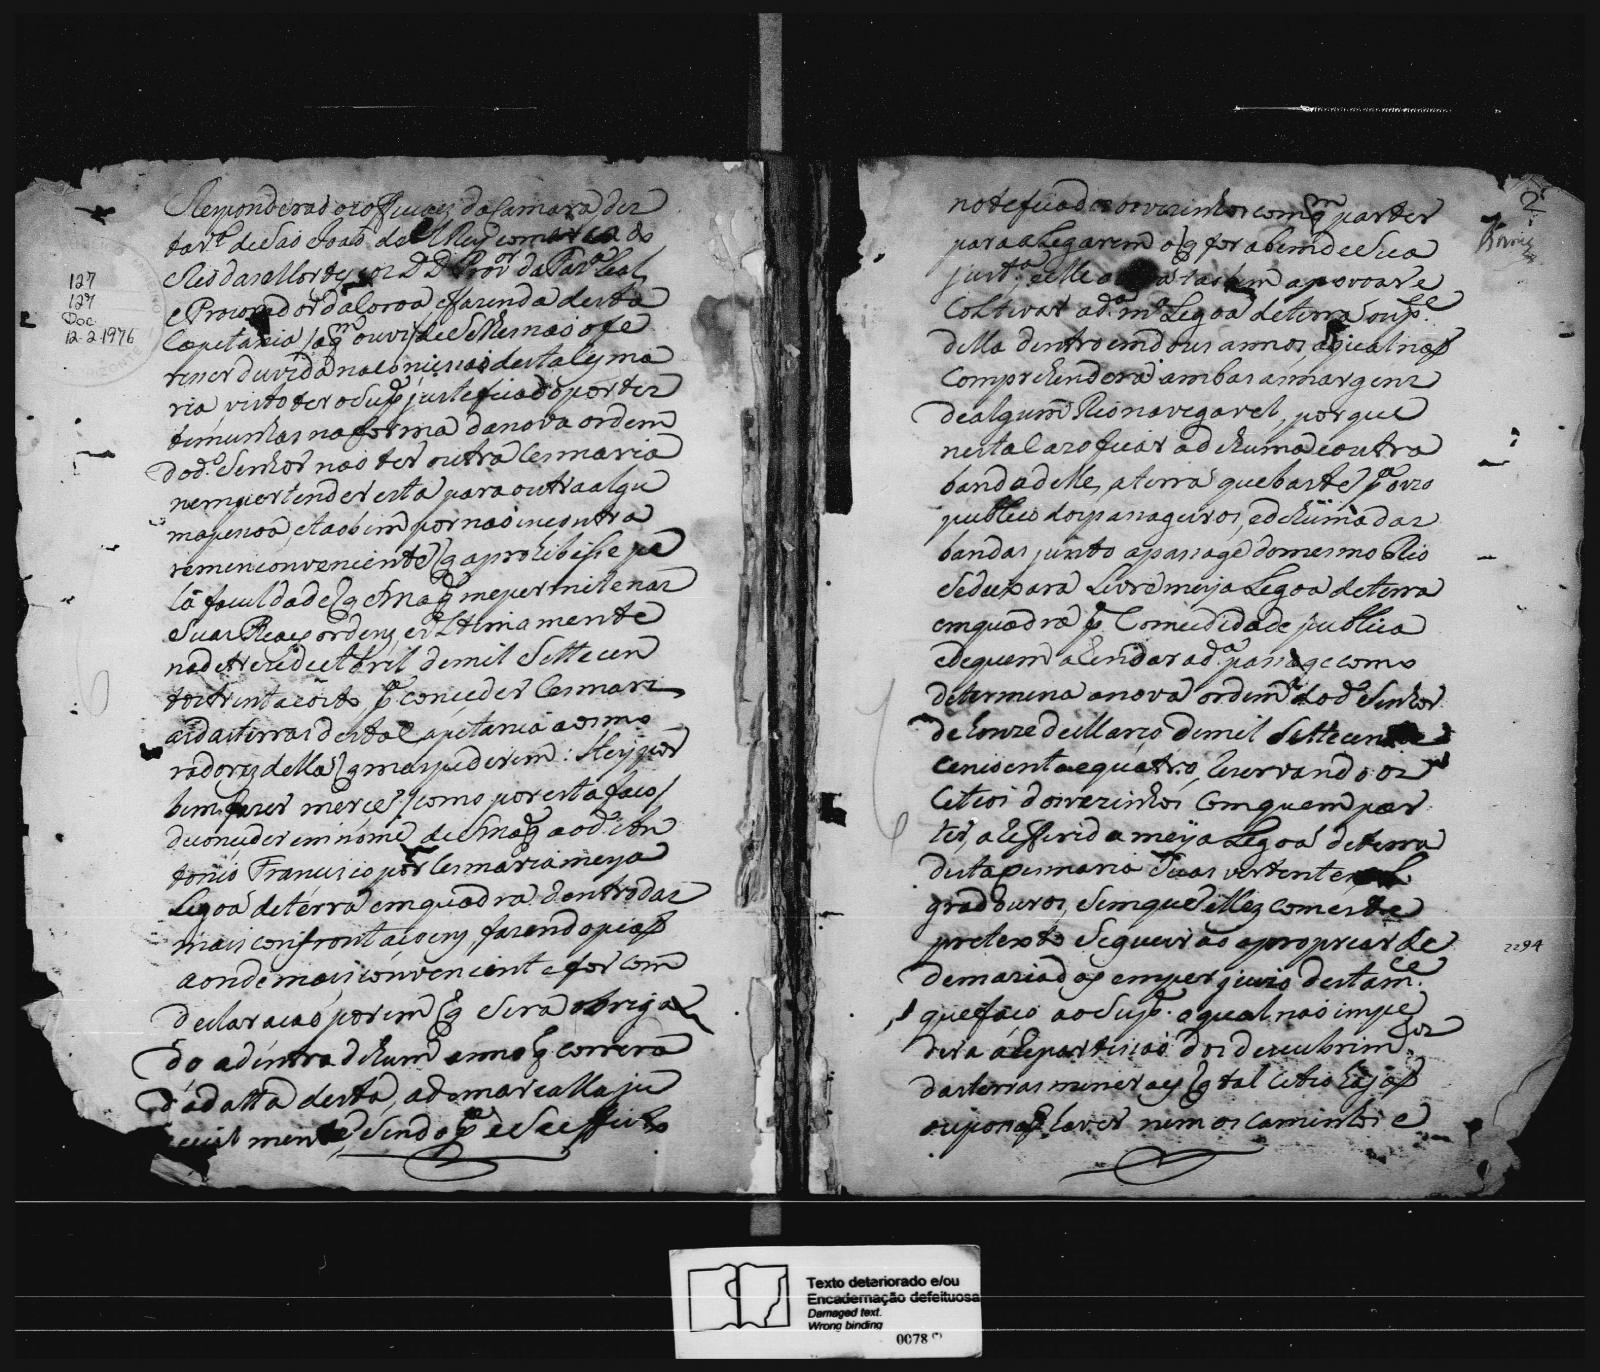 Responderaõ os officiaes da Camara des
ta V.ª de Saõ Joaõ del Rey comarca do
Rio das Mortes, e os D D Prov.or da Faz.ª Real
e Procurador da Coroa e fazenda desta
Capetania (a q.m ouvi) de se lhes naõ ofe
reser duvida na conceçaõ desta Cesma
ria visto ter o Sup.e justeficado por tes
timunhas na forma da nova ordem
do d.º Senhor naõ ter outra Cesmaria
nem pertender esta para outra algu
ma pesoa, e taobem por naõ incontra
rem inconveniente q a prohibisse pe
la faculdade q S Mag.e me permite nas
Suas Reaes ordenz, e ultimamente
na de treze de Abril de mil Settecen
tos trinta e oito, p.ª conceder Cesmari
as das terras desta Capetania aos mo
radores della q mas pedirem: Hey por
bem fazer merce (como por esta faço)
de conceder em nome de S Mag.e ao d.º An
tonio Francisco por Cesmaria meya
Legoa de terra em quadra dentro das
mais confrontaçoens, fazendo piaõ
aonde mais conveniente for com
declaraçaõ porem q Será obriga
do a dentro de hum anno q correrá
da data desta, a demarcalla ju
mente, Sendo p.ª e Se effeito
127
127
Doc
12-2-1976
noteficados os vezinhos com q.m partes
para alegarem o q for a bem de Sua
just.ª e elle o
Coltivar a d.ª m.ª Legoa de terra ou p.e
della dentro em dous annos, a qual naõ
Comprehenderá ambas as margens
de algum Rio navegavel, porque
neste Cazo ficará de huma e outra
banda delle, a terra que baste p.ª o uzo
publico dos pasageiros, e de huma das
bandas junto a pasage do mesmo Rio
Se deixara Livre meya Legoa de terra
em quadra p.ª Comedidade publica
e de quem arendar a d.ª pasage como
determina a nova ordem do d.º Senhor
de honze de Março de mil Settecentos
Cenconta e quatro, reservando os
Citios dos vezinhos Com quem par
tes, a refferida meya Legoa de terra
desta Cesmaria Suas vertentes, e L
gradouros, Sem que elles com este
pretexto Se queiraõ apropriar de
demaziado em perjuizo desta m.ce
que faço ao Sup.e a qual naõ impe
dira a Repartiçaõ dos descubrim.tos
das terras mineraes q tal Citio hajaõ
ou posaõ haver nem os Caminhos e
2
2294
Texto deteriorado e/ou
Encadernação defeituosa
Damaged text.
Wrong binding
0078